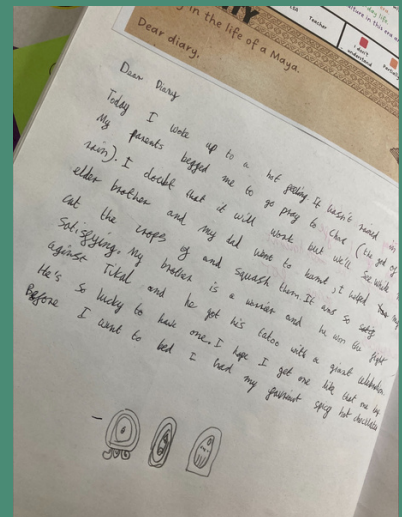 in the life of a Maya.
Teacher
I don't
understand
Dear diary,
Dear Diary
Today I woke up to a hot feeling It hasn't rained
My parents begged me to go pray to Chac (the god of
rain). I doubt that it will work but we'll see. While
elder brother and my dad went to hunt, I helped
cut the crops of and squash them. It was so
satisfying. My brother is a warrior and he won the fight
against Tikal and he got his tatoo with a giant celebration
He's so lucky to have one. I hope I get one like that one day
Before I went to bed I had my spicy hot chocolate